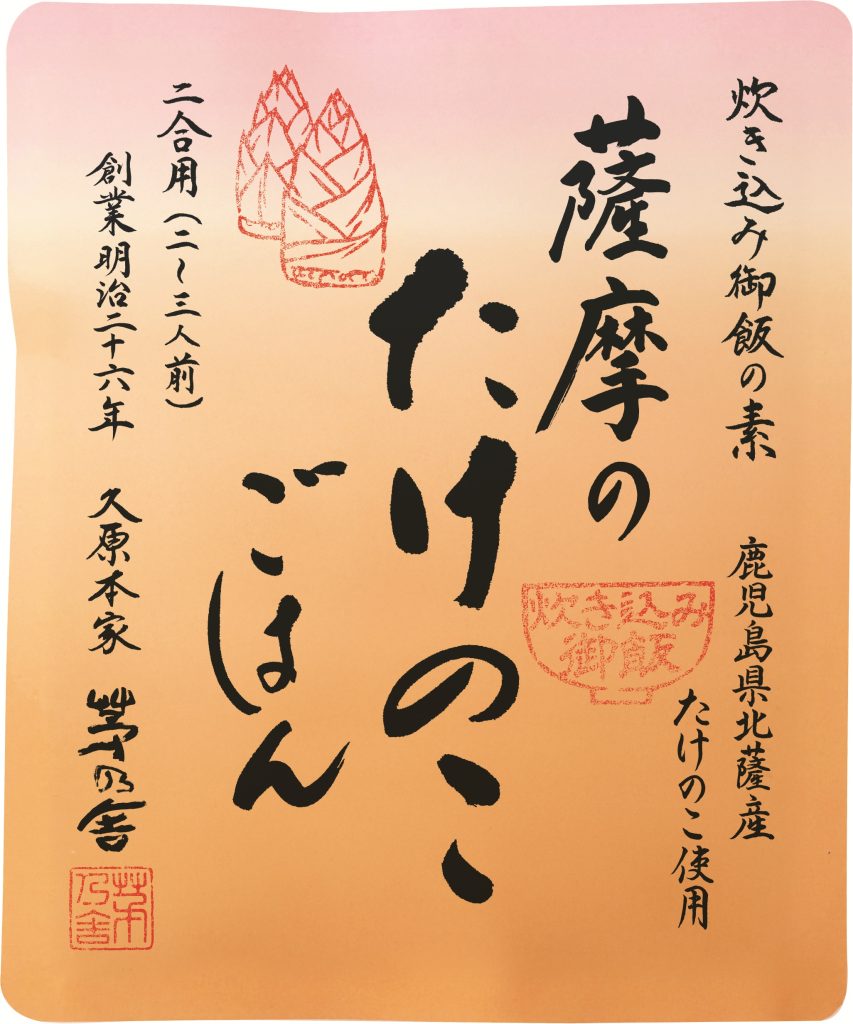 炊き込み御飯の素
鹿児島県北薩産
たけのこ使用
薩摩の
炊き込み
御飯
たけのこ
ごはん
二合用(二〜三人前)
創業明治二十六年 久原本家 茅乃舎
茅乃舎